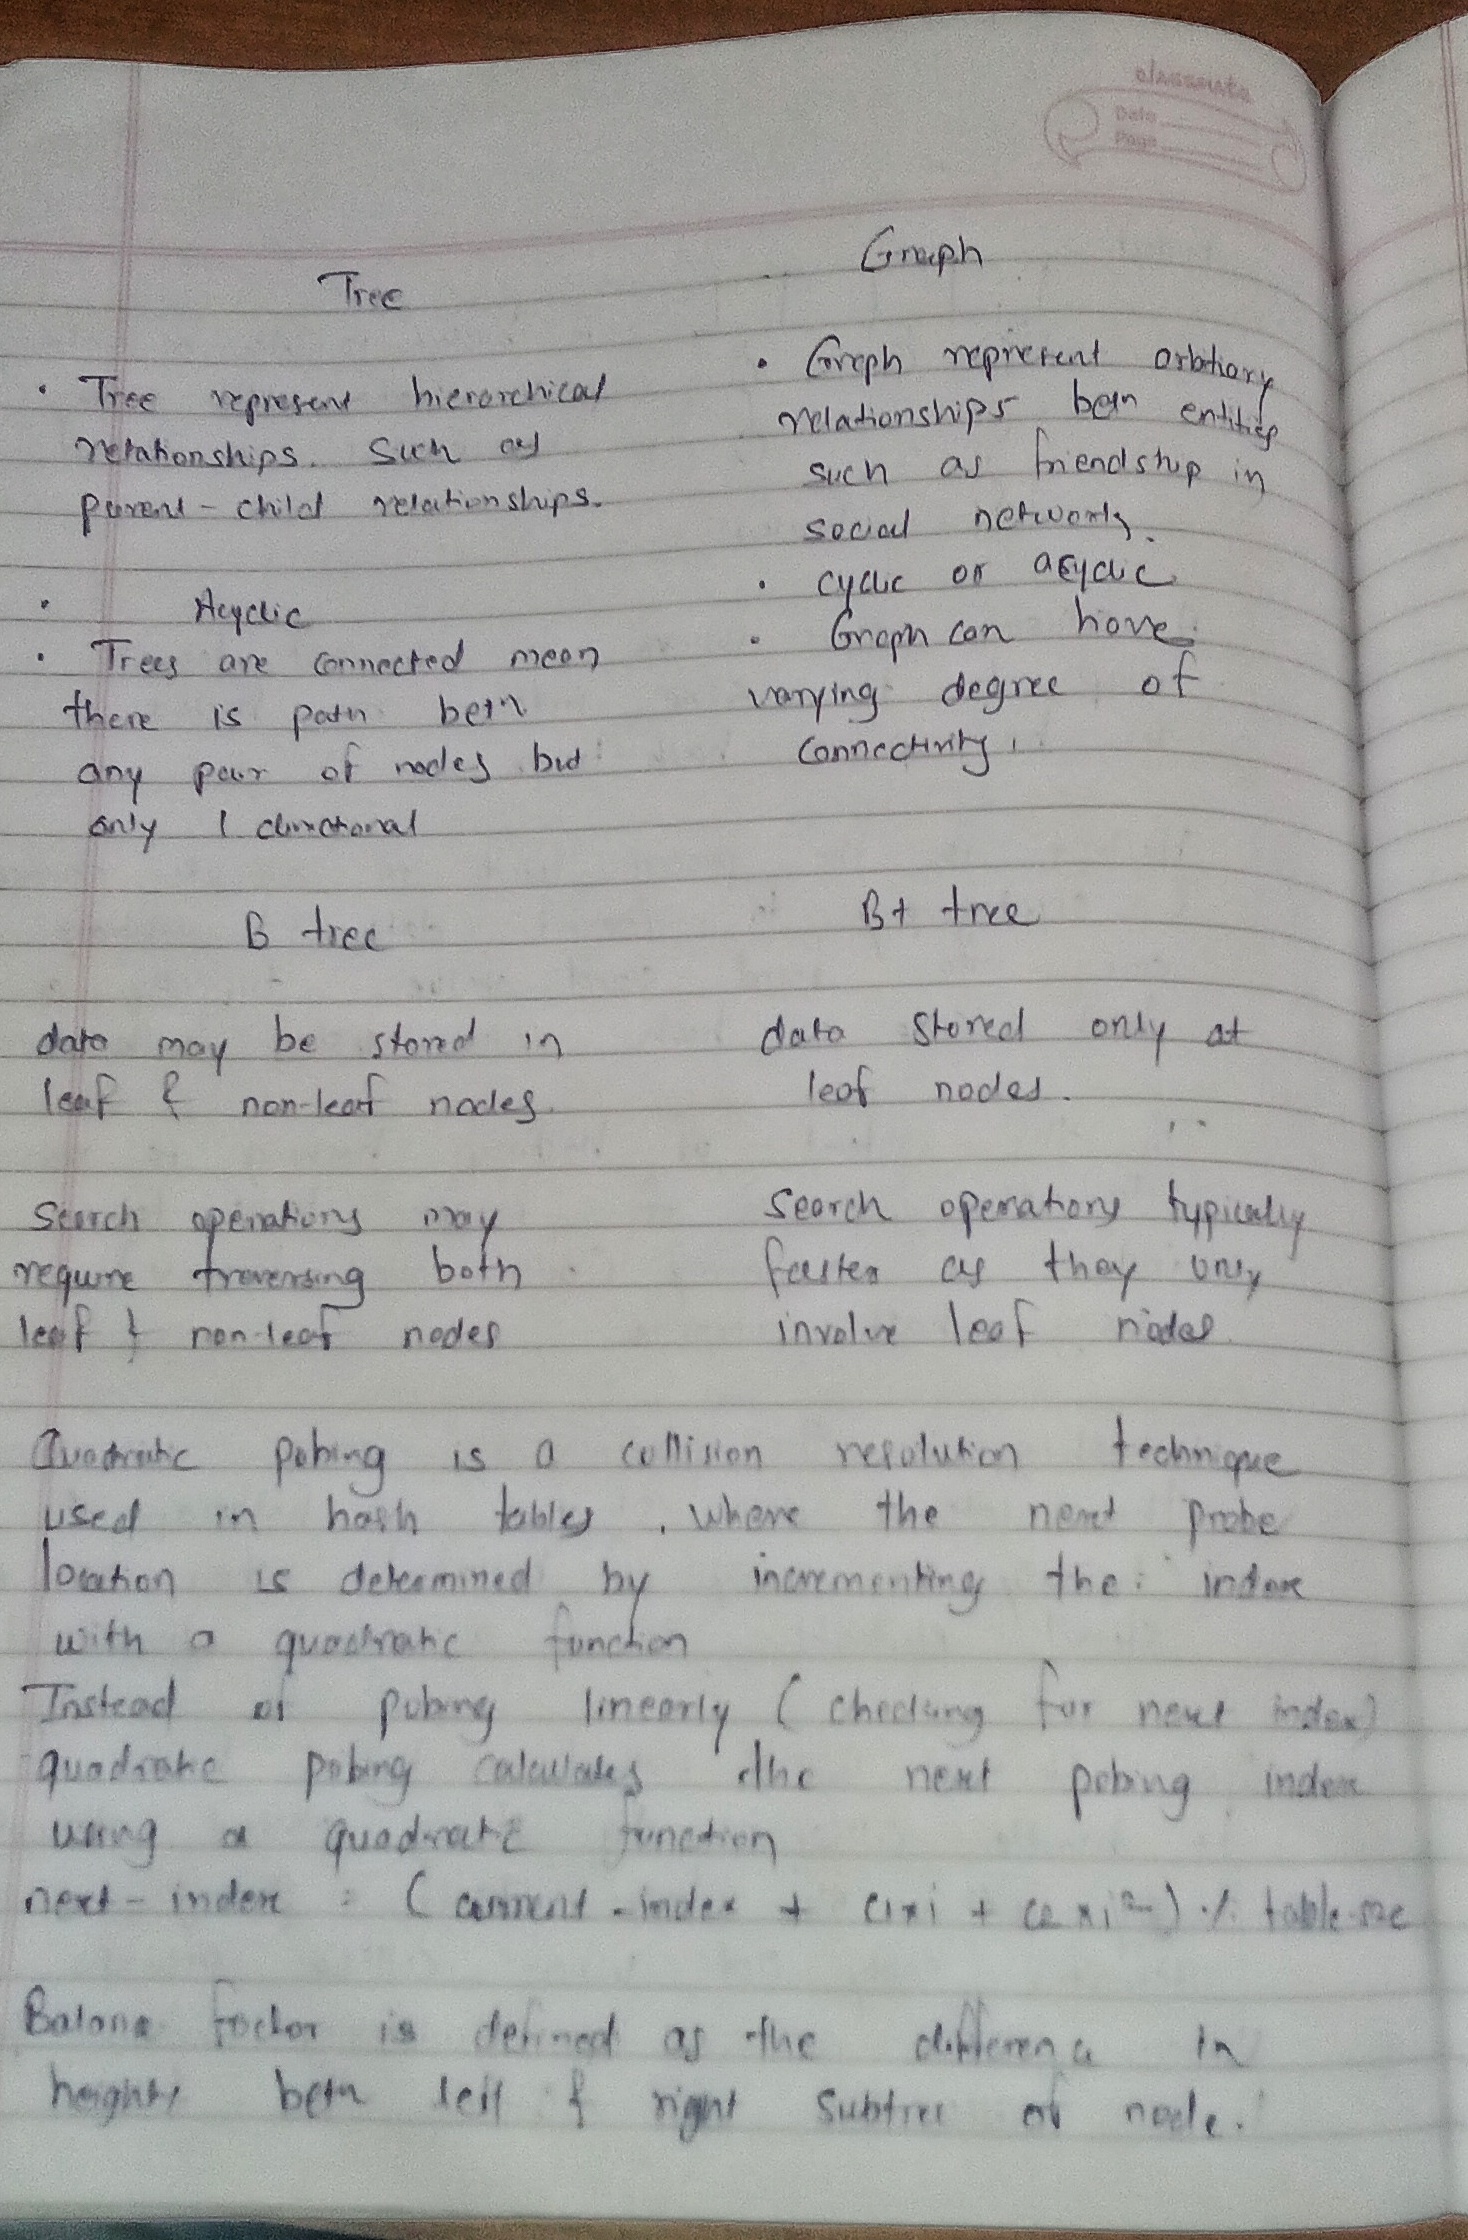 classmate
Date
Page
Tree
Graph
• Tree represent hierarchical
relationships. Such as
parent - child relationships.
• Acyclic
• Trees are connected mean
there is path betn
any pair of nodes but
only 1 directional
• Graph represent orbtiary
relationships betn entities
such as friendship in
social networks.
• cyclic or acyclic
• Graph can have
varying degree of
connectivity.
B tree
B+ tree
data may be stored in
leaf & non-leaf nodes.
data stored only at
leaf nodes.
Search operations may
require traversing both
leaf & non-leaf nodes
Search operations typically
faster as they only
involve leaf nodes.
Quadratic pobing is a collision resolution technique
used in hash tables, where the next probe
location is determined by incrementing the index
with a quadratic function
Instead of pobing linearly (checking for next index)
quadratic pobing calculates the next pobing index
using a quadratic function
next - index = (current - index + c1 x i + c2 x i²) % table-size
Balance factor is defined as the difference in
heights betn left & right subtree of node.